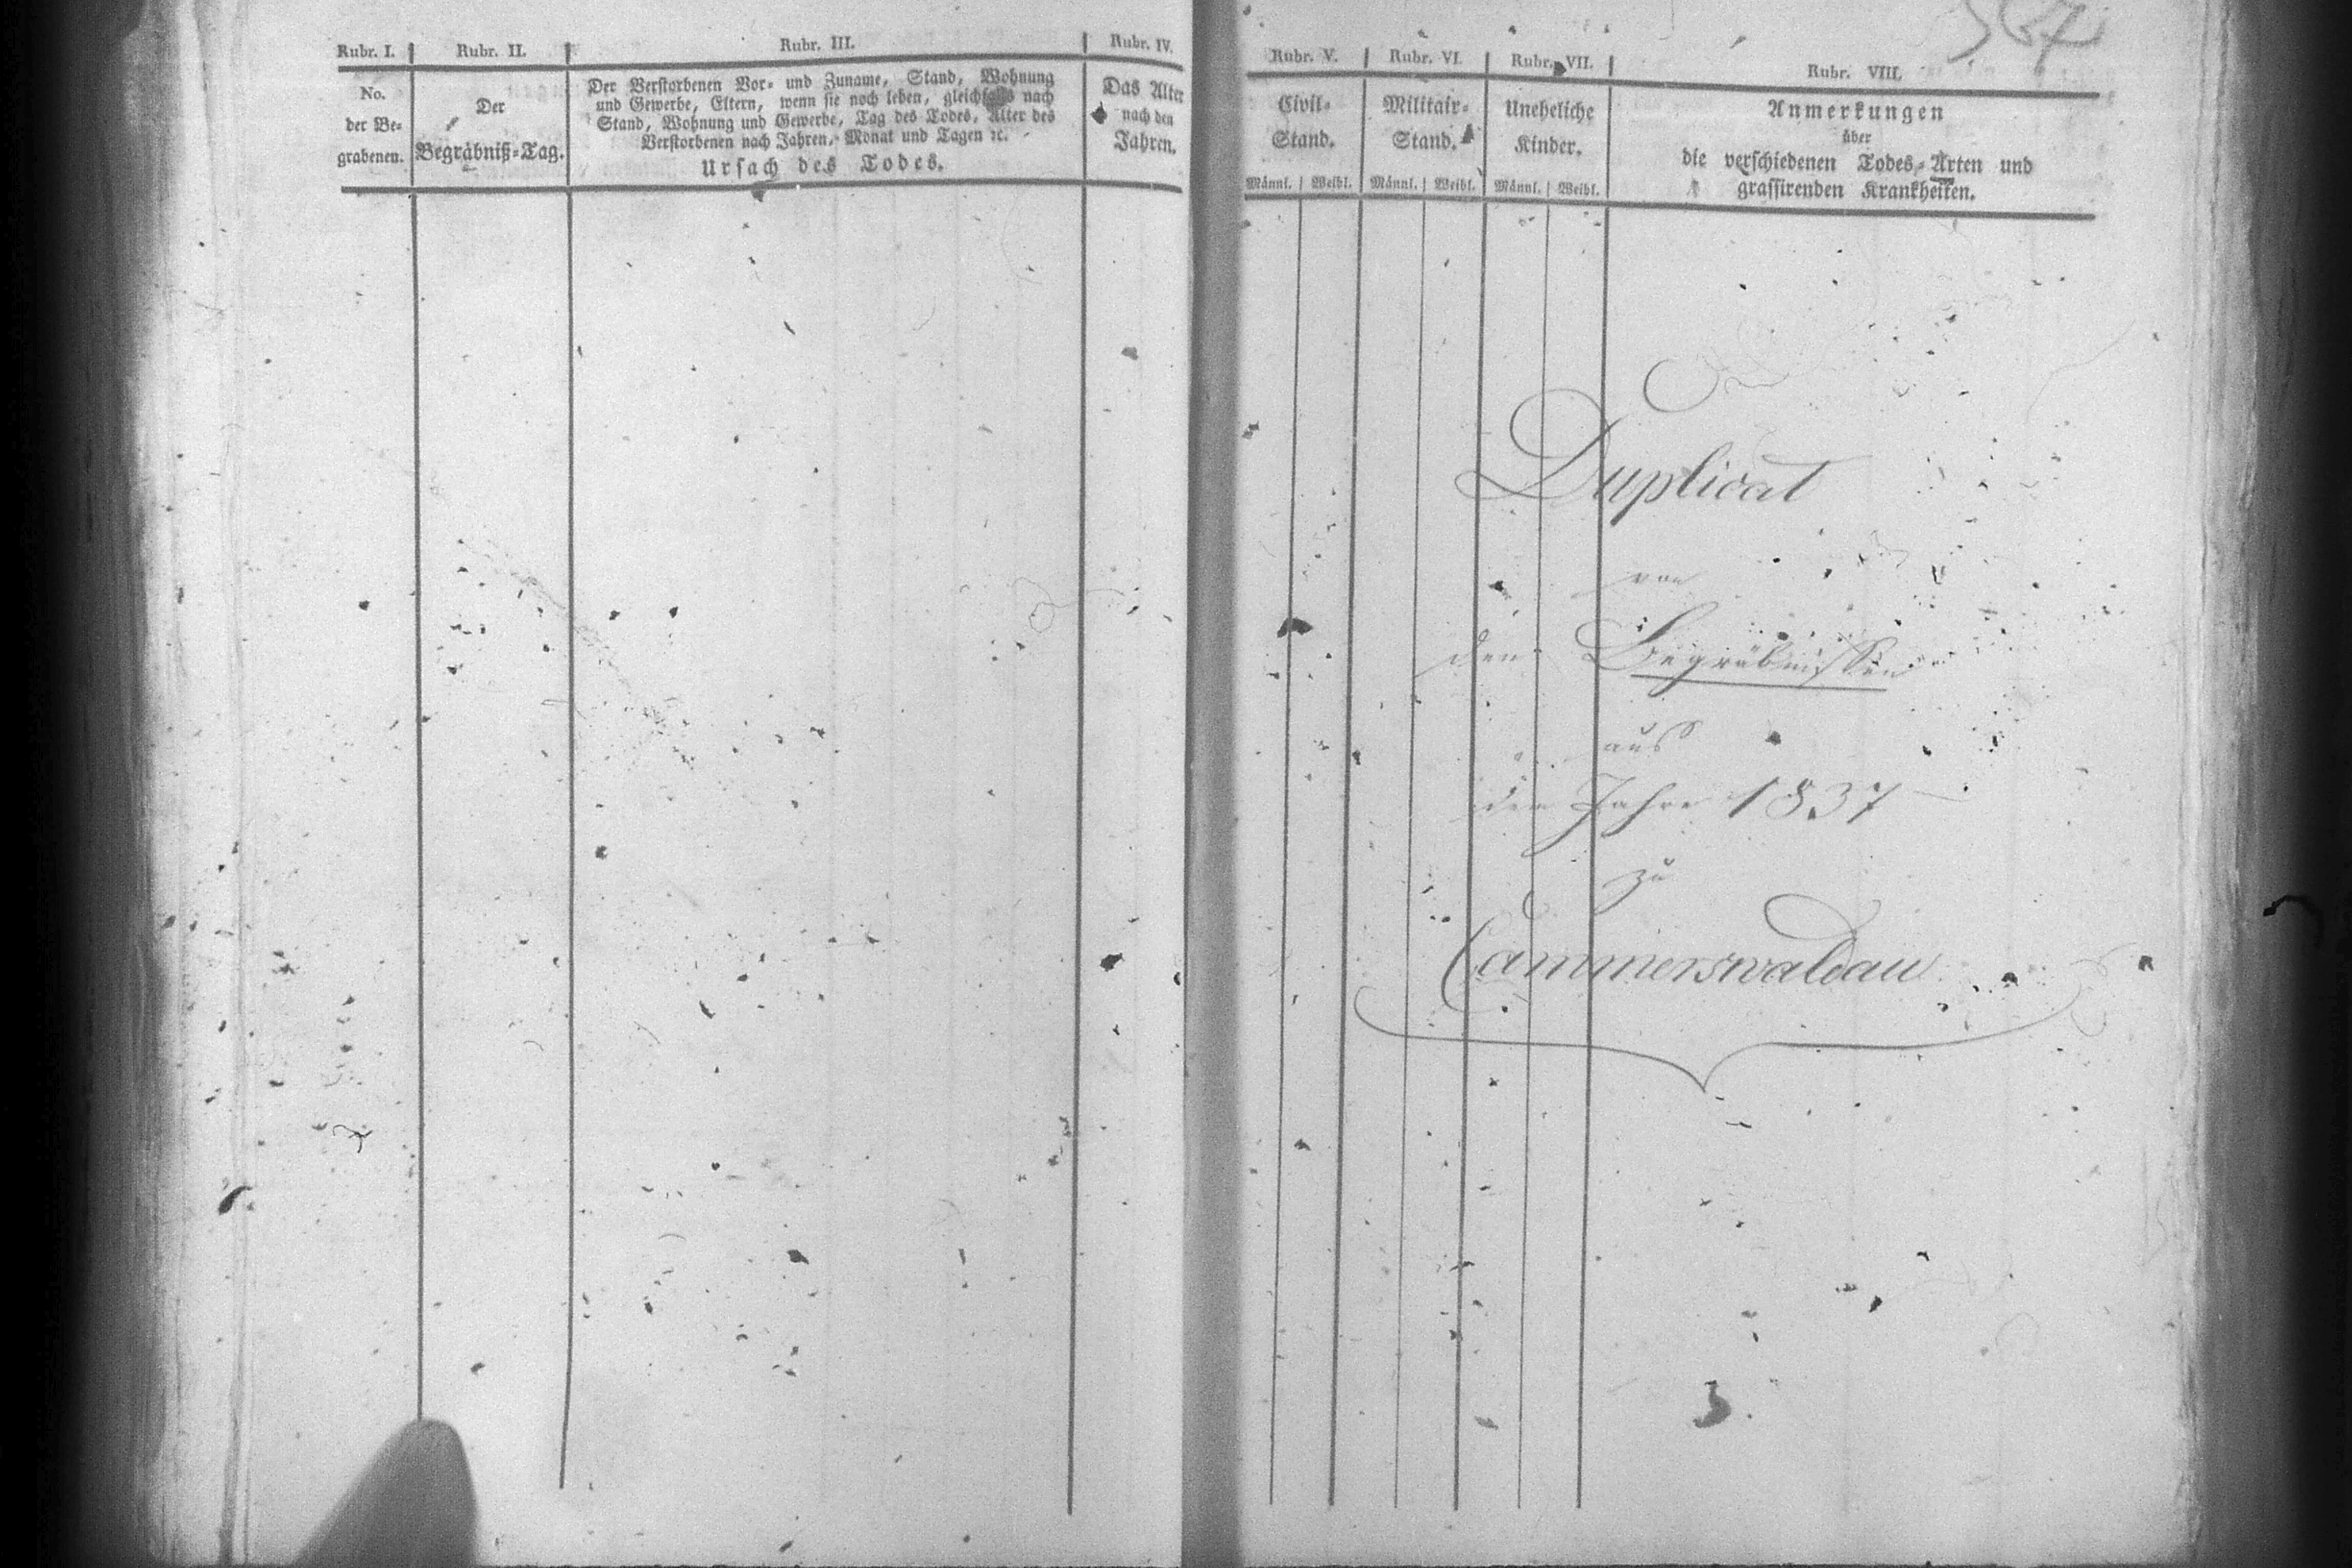 Rubr. I.
No.
der Be-
grabenen.
Rubr. II.
Der
Begräbniß-Tag.
Rubr. III.
Der Verstorbenen Vor- und Zuname, Stand, Wohnung
und Gewerbe, Eltern, wenn sie noch leben, gleichfalls nach
Stand, Wohnung und Gewerbe, Tag des Todes, Alter des
Verstorbenen nach Jahren, Monat und Tagen ꝛc.
Ursach des Todes.
Rubr. IV.
Das Alter
nach den
Jahren.
Rubr. V.
Civil-
Stand.
Männl. Weibl.
Rubr. VI.
Militair-
Stand.
Männl. Weibl.
Rubr. VII.
Uneheliche
Kinder.
Männl. Weibl.
Rubr. VIII.
Anmerkungen
über
die verschiedenen Todes-Arten und
grassirenden Krankheiten.
Duplicat
von
den Begräbnissen
aus
den Jahre 1837
zu
Cammerswaldau